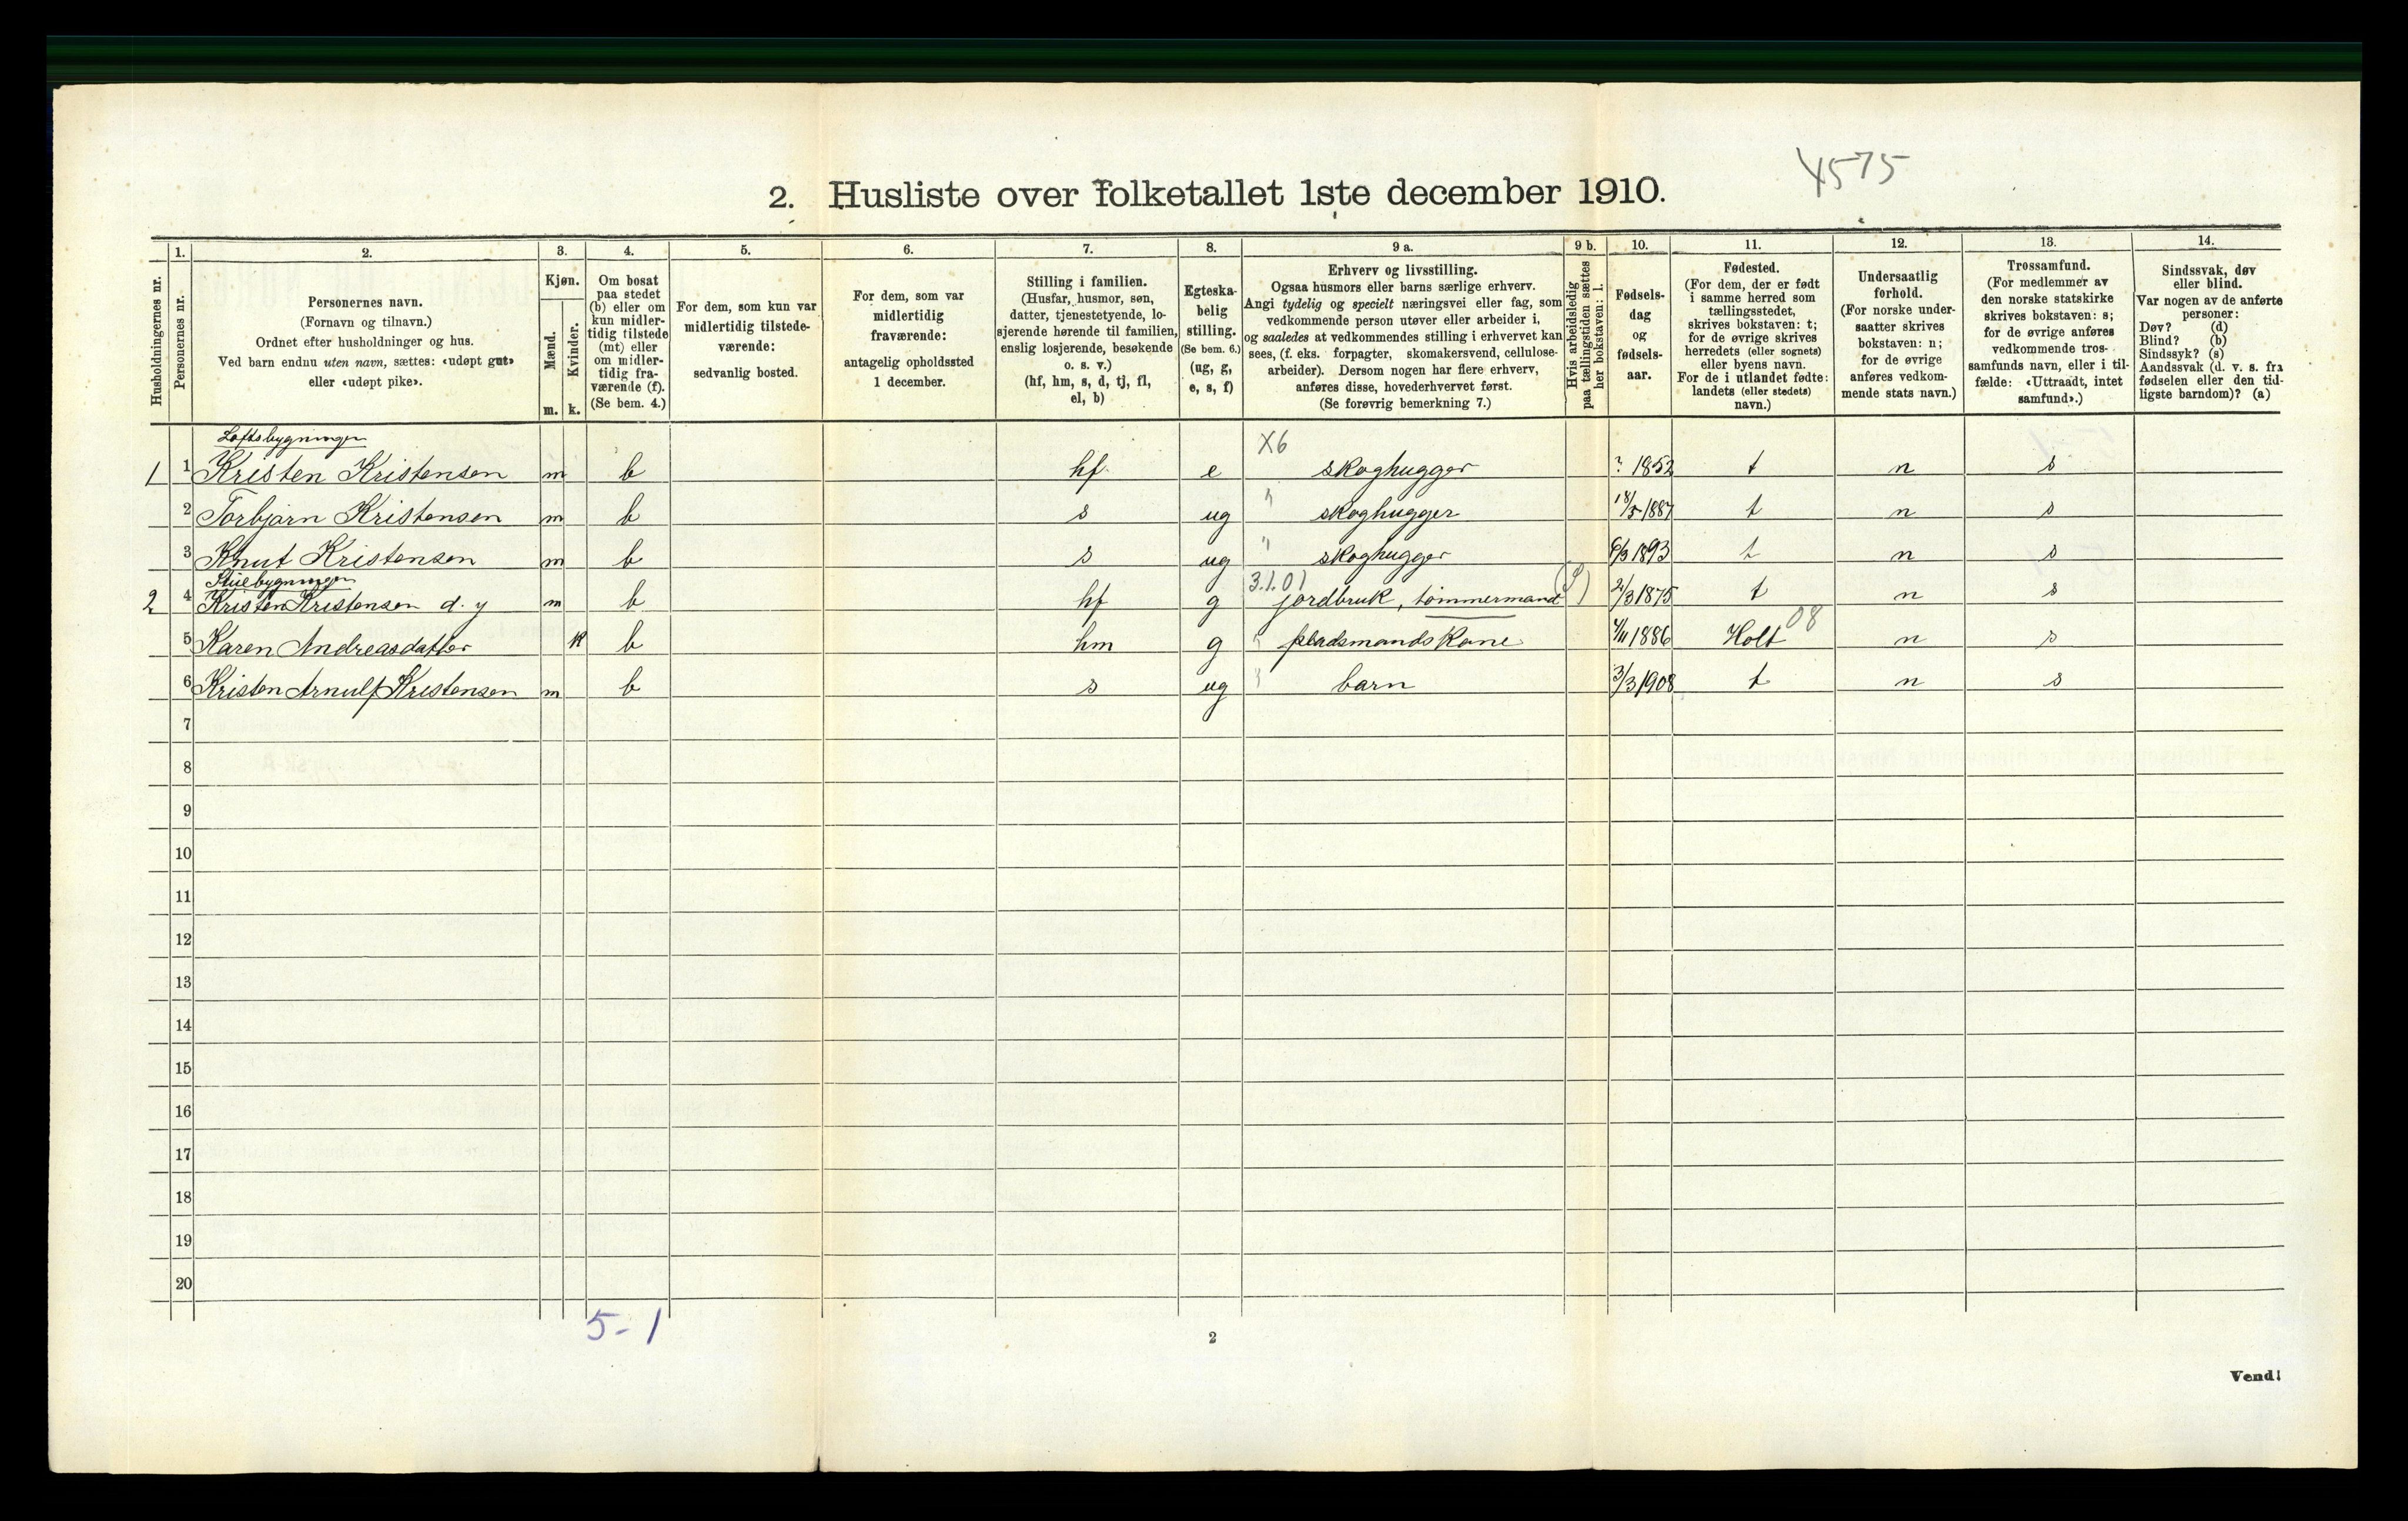 4575
2. Husliste over folketallet 1ste december 1910.
Husholdningernes nr.
1.
Personernes nr.
2.
Personernes navn.
(Fornavn og tilnavn.)
Ordnet efter husholdninger og hus.
Ved barn endnu uten navn, sættes: «udøpt gut»
eller «udøpt pike».
3.
Kjøn.
Mænd.
Kvinder.
m. k.
4.
Om bosat
paa stedet
(b) eller om
kun midler-
tidig tilstede
(mt) eller
om midler-
tidig fra-
værende (f).
(Se bem. 4.)
5.
For dem, som kun var
midlertidig tilstede-
værende:
sedvanlig bosted.
6.
For dem, som var
midlertidig
fraværende:
antagelig opholdssted
1 december.
7.
Stilling i familien.
(Husfar, husmor, søn,
datter, tjenestetyende, lo-
sjerende hørende til familien,
enslig losjerende, besøkende
o. s. v.)
(hf, hm, s, d, tj, fl,
el, b)
8.
Egteska-
belig
stilling.
(Se bem. 6.)
(ug, g,
e, s, f)
9 a.
Erhverv og livsstilling.
Ogsaa husmors eller barns særlige erhverv.
Angi tydelig og specielt næringsvei eller fag, som
vedkommende person utøver eller arbeider i,
og saaledes at vedkommendes stilling i erhvervet kan
sees, (f. eks. forpagter, skomakersvend, cellulose-
arbeider). Dersom nogen har flere erhverv,
anføres disse, hovederhvervet først.
(Se forøvrig bemerkning 7.)
9 b.
Hvis arbeidsledig
paa tællingstiden sættes
her bokstaven: l.
10.
Fødsels-
dag
og
fødsels-
aar.
11.
Fødested.
(For dem, der er født
i samme herred som
tællingsstedet,
skrives bokstaven: t;
for de øvrige skrives
herredets (eller sognets)
eller byens navn.
For de i utlandet fødte:
landets (eller stedets)
navn.)
12.
Undersaatlig
forhold.
(For norske under-
saatter skrives
bokstaven: n;
for de øvrige
anføres vedkom-
mende stats navn.)
13.
Trossamfund.
(For medlemmer av
den norske statskirke
skrives bokstaven: s;
for de øvrige anføres
vedkommende tros-
samfunds navn, eller i til-
fælde: «Uttraadt, intet
samfund».)
14.
Sindssvak, døv
eller blind.
Var nogen av de anførte
personer:
Døv? (d)
Blind? (b)
Sindssyk? (s)
Aandssvak (d. v. s. fra
fødselen eller den tid-
ligste barndom)? (a)
Loftsbygningen
X6
1 1 Kristen Kristensen m b hf e skoghugger ? 1852 t n s
2 Torbjørn Kristensen m b s ug " skoghugger 18/5 1887 t n s
3 Knut Kristensen m b s ug " skoghugger 6/3 1893 t n s
Stuebygningen
3.1.01
2 4 Kristen Kristensen d. y m b hf g jordbruk, tømmermand 2/3 1875 t n s
08
5 Karen Andreasdatter k b hm g " pladsmands kone 4/11 1886 Holt n s
6 Kristen Arnulf Kristensen m b s ug " barn 3/3 1908 t n s
7
8
9
10
11
12
13
14
15
16
17
18
19
20
5-1
2
Vend!